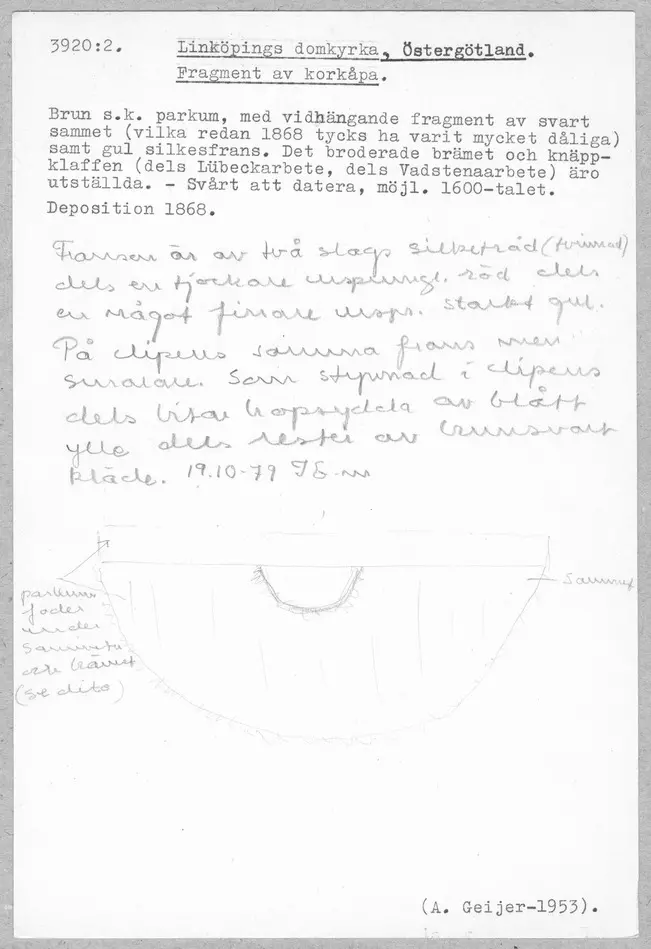 3920:2.
Linköpings domkyrka, Östergötland.
Fragment av korkåpa.
Brun s.k. parkum, med vidhängande fragment av svart
sammet (vilka redan 1868 tycks ha varit mycket dåliga)
samt gul silkesfrans. Det broderade brämet och knäpp-
klaffen (dels Lübeckarbete, dels Vadstenaarbete) äro
utställda. - Svårt att datera, möjl. 1600-talet.
Deposition 1868.
Fransen är av två slags silketråd (tvinnad)
dels en tjockare urspungl. röd dels
en något finare urspr. starkt gul.
På clipeus samma frans men
smalare. Som styvnad i clipeus
dels bitar hopsydda av blått
ylle dels rester av brunsvart
kläde. 19.10-79
parkum
foder
under
sammeten
och brämet
(se dito)
Sammet
(A. Geijer-1953).